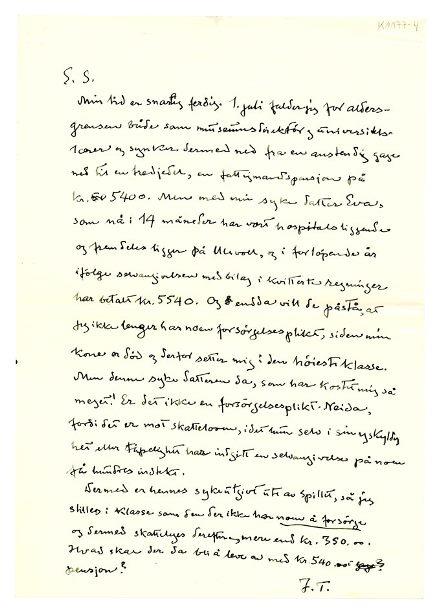 K1177-4
S. S.
Min tid er snartig ferdig. 1. juli falder jeg for alders-
grensen både som museumsdirektör og universitets-
lærer og synker dermed ned fra en anstendig gage
ned til en tredjedel, en fattigmandspensjon på
kr. 5400. Men med min syke datter Eva,
som nå i 14 måneder har vært hospitalsliggende
og fremdeles ligger på Ullevoll, og i forlöpende år
ifölge selvangivelsen med bilag i kvitterte regninger
har betalt kr. 5540. Og endda vill de påstå, at
jeg ikke lenger har noen forsörgelsesplikt, siden min
kone er död og derfor setter mig i den höieste klasse.
Men denne syke datteren da, som har kostet mig så
meget! Er det ikke en forsörgelsesplikt. Neida,
fordi det er mot skatteloven, idet hun selv i sin uskyldig
het eller tåpelighet har indgitt en selvangivelse på noen
få hundres indtekt.
Dermed er hennes sykeutgivt ute av spillet, så jeg
stilles i klasse som den der ikke har noen å forsörge
og dermed skattelegges derefter, mere end kr. 350.00.
Hvad skal der da bli å leve av med kr. 540
pensjon?
J. T.